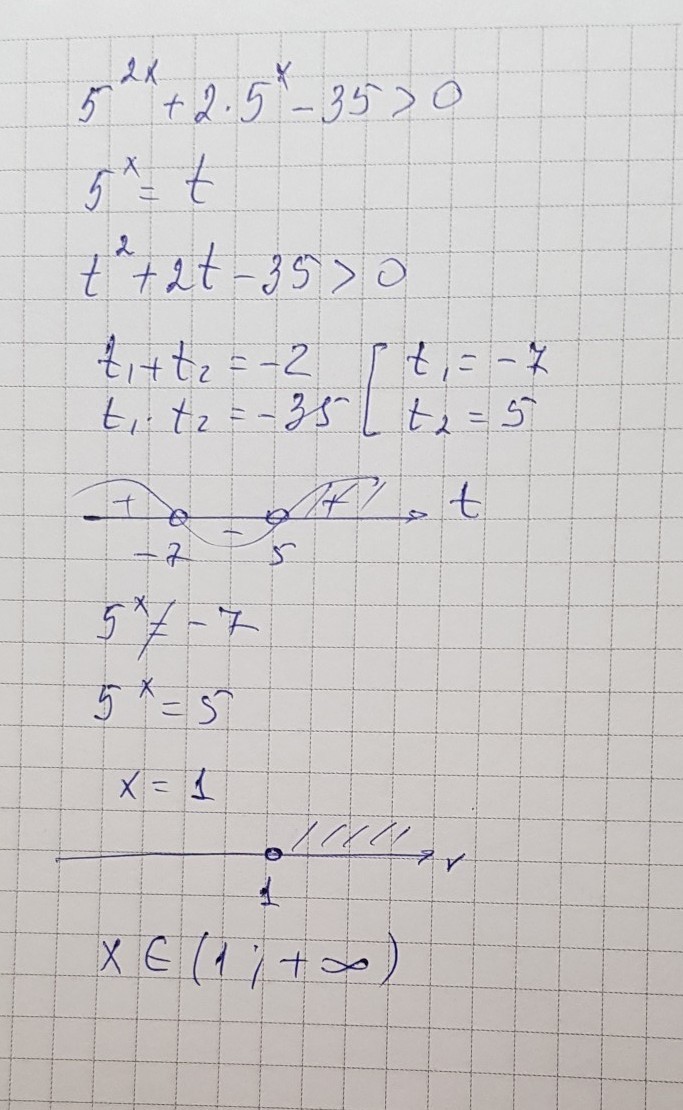 5^{2x} + 2 · 5^x − 35 > 0
5^x = t
t^2 + 2t − 35 > 0
t₁ + t₂ = −2 [ t₁ = −7
t₁ · t₂ = −35 [ t₂ = 5
+ − + t
−7 5
5^x ≠ −7
5^x = 5
x = 1
1
x ∈ (1; +∞)